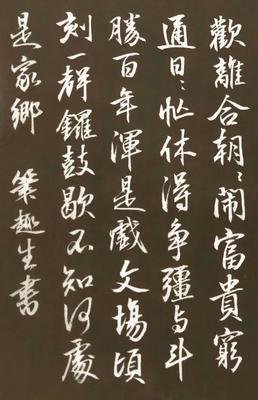 歡離合朝〻鬧富貴窮
通日〻忙休得争彊与斗
勝百年渾是戲文場頃
刻一群鑼鼓歇不知何處
是家鄉 筑趣生書